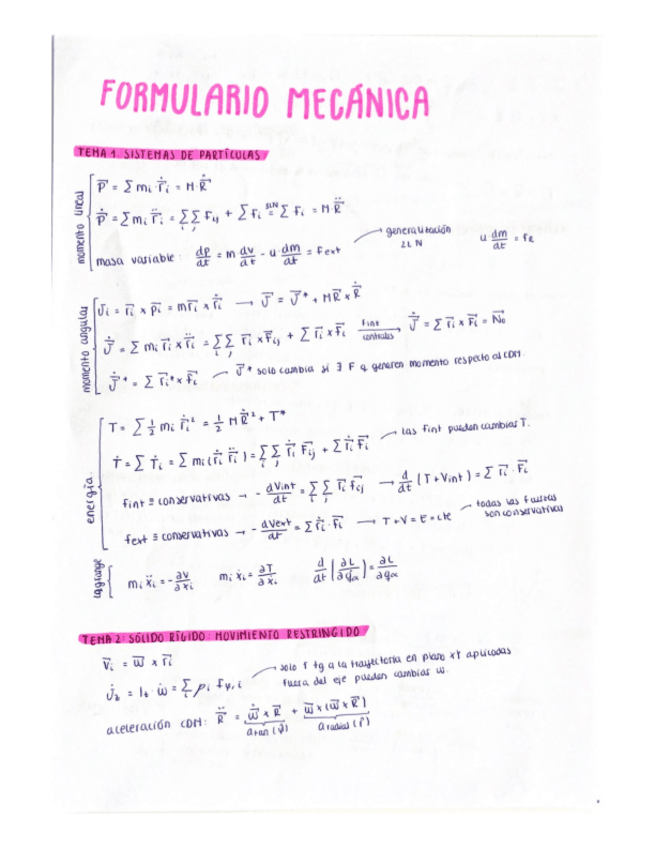 FORMULARIO MECÁNICA
TEMA 1. SISTEMAS DE PARTÍCULAS
momento lineal
P⃗ = Σ mᵢ · ṙ⃗ᵢ = M · Ṙ⃗
Ṗ⃗ = Σ mᵢ r̈⃗ᵢ = Σᵢ Σⱼ Fᵢⱼ + Σ Fᵢ = Σ Fᵢ = M R̈⃗
masa variable: dp/dt = m dv/dt - u dm/dt = Fext
generalización 2LN
u dm/dt = fR
momento angular
Jᵢ = r⃗ᵢ × p⃗ᵢ = m r⃗ᵢ × ṙ⃗ᵢ → J⃗ = J⃗* + M R⃗ × Ṙ⃗
J̇⃗ = Σ mᵢ r⃗ᵢ × r̈⃗ᵢ = Σᵢ Σⱼ r⃗ᵢ × F⃗ᵢⱼ + Σ r⃗ᵢ × F⃗ᵢ Fint centrales → J̇⃗ = Σ r⃗ᵢ × F⃗ᵢ = N⃗₀
J̇⃗* = Σ r⃗ᵢ* × F⃗ᵢ
J⃗* solo cambia si ∃ F q generen momento respecto al CDM.
energía
T = Σ ½ mᵢ ṙ⃗ᵢ² = ½ M Ṙ⃗² + T*
Ṫ = Σ Ṫᵢ = Σ mᵢ (ṙᵢ r̈ᵢ) = Σᵢ Σⱼ ṙ⃗ᵢ F⃗ᵢⱼ + Σ ṙ⃗ᵢ F⃗ᵢ
las fint pueden cambiar T.
fint ≡ conservativas → - dVint/dt = Σᵢ Σⱼ ṙ⃗ᵢ f⃗ᵢⱼ → d/dt (T + Vint) = Σ ṙ⃗ᵢ · F⃗ᵢ
fext ≡ conservativas → - dVext/dt = Σ ṙ⃗ᵢ · F⃗ᵢ → T + V = E = cte
todas las fuerzas son conservativas
Lagrange
mᵢ ẍᵢ = - ∂V/∂xᵢ
mᵢ ẋᵢ = ∂T/∂ẋᵢ
d/dt (∂L/∂q̇α) = ∂L/∂qα
TEMA 2: SÓLIDO RÍGIDO: MOVIMIENTO RESTRINGIDO
v⃗ᵢ = ω⃗ × r⃗ᵢ
J̇z = Iz · ω̇ = Σ ρᵢ fφ,ᵢ
solo f tg a la trayectoria en plano XY aplicadas
fuera del eje pueden cambiar ω.
aceleración CDM: R̈⃗ = ω̇⃗ × R⃗ + ω⃗ × (ω⃗ × R⃗)
a tan (φ̂)
a radial (r̂)